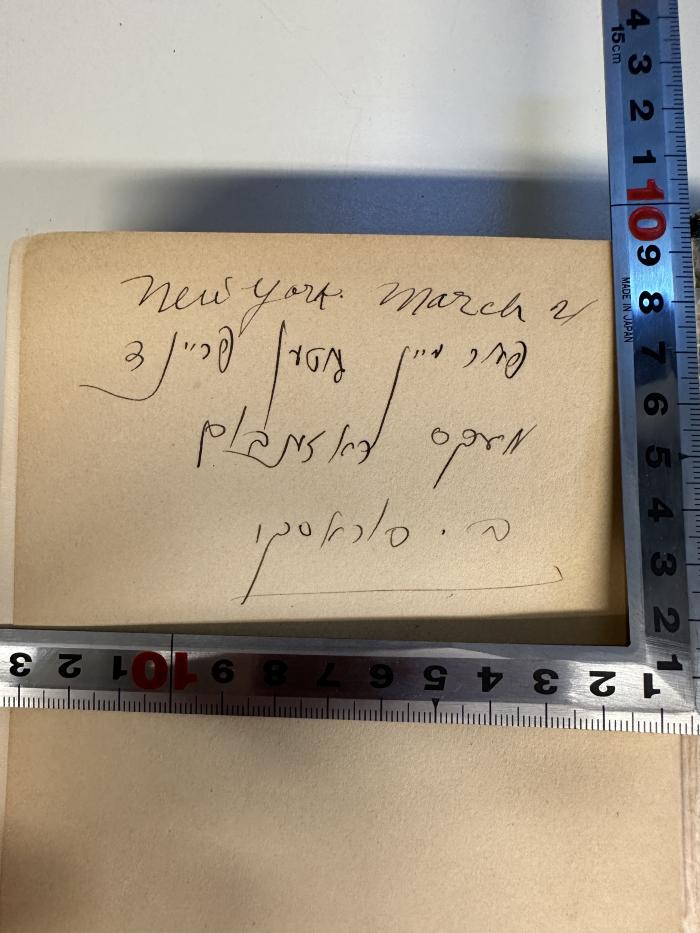 New York. March 2/
פאר מיין גוטען פריינד
מעקס
ב. סוראסקי
15cm
MADE IN JAPAN
4 3 2 1 10 9 8 7 6 5 4 3 2 1
1 2 3 4 5 6 7 8 9 10 1 2 3